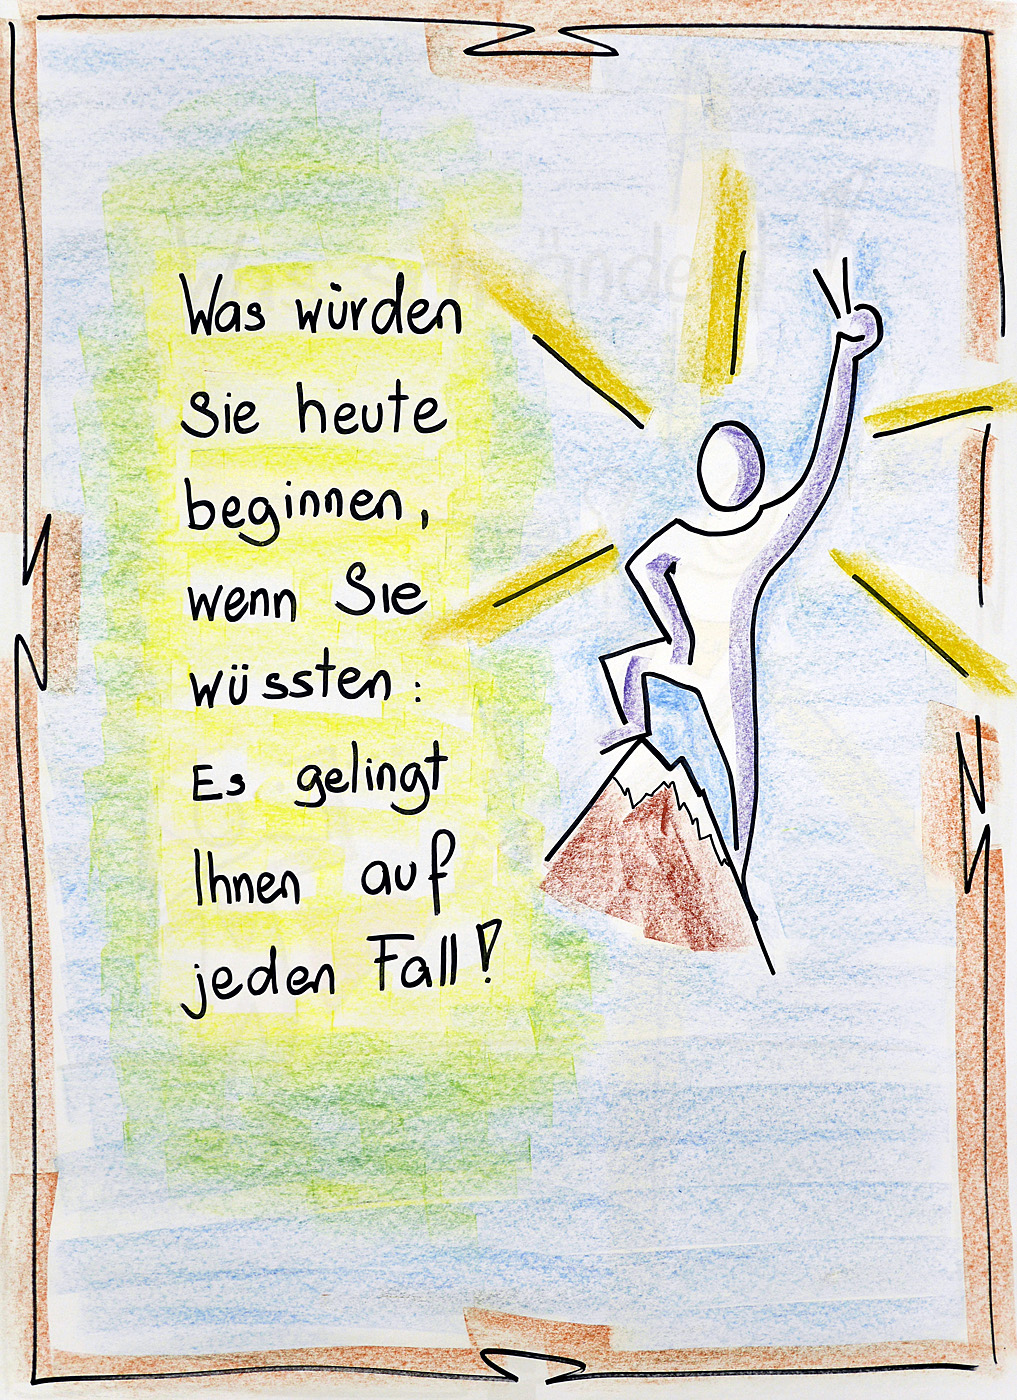 Was würden
Sie heute
beginnen,
wenn Sie
wüssten:
Es gelingt
Ihnen auf
jeden Fall!